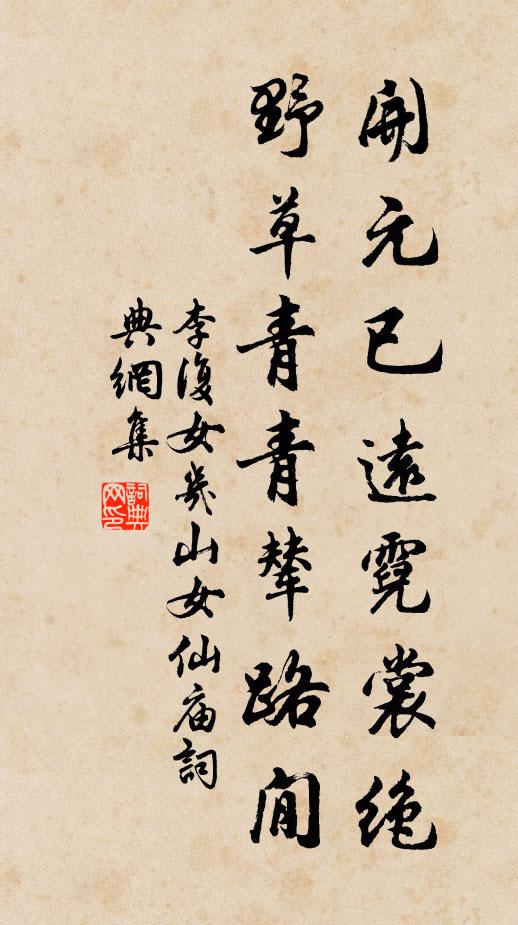 開元已遠霓裳絶
野草青青輦路閒
李復女幾山女仙庙詞
典網集
詞典
网印